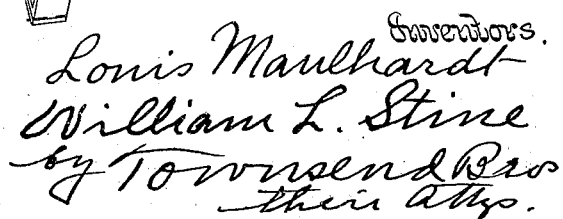 Inventors.
Louis Maulhardt
William L. Stine
by Townsend Bros
their attys.